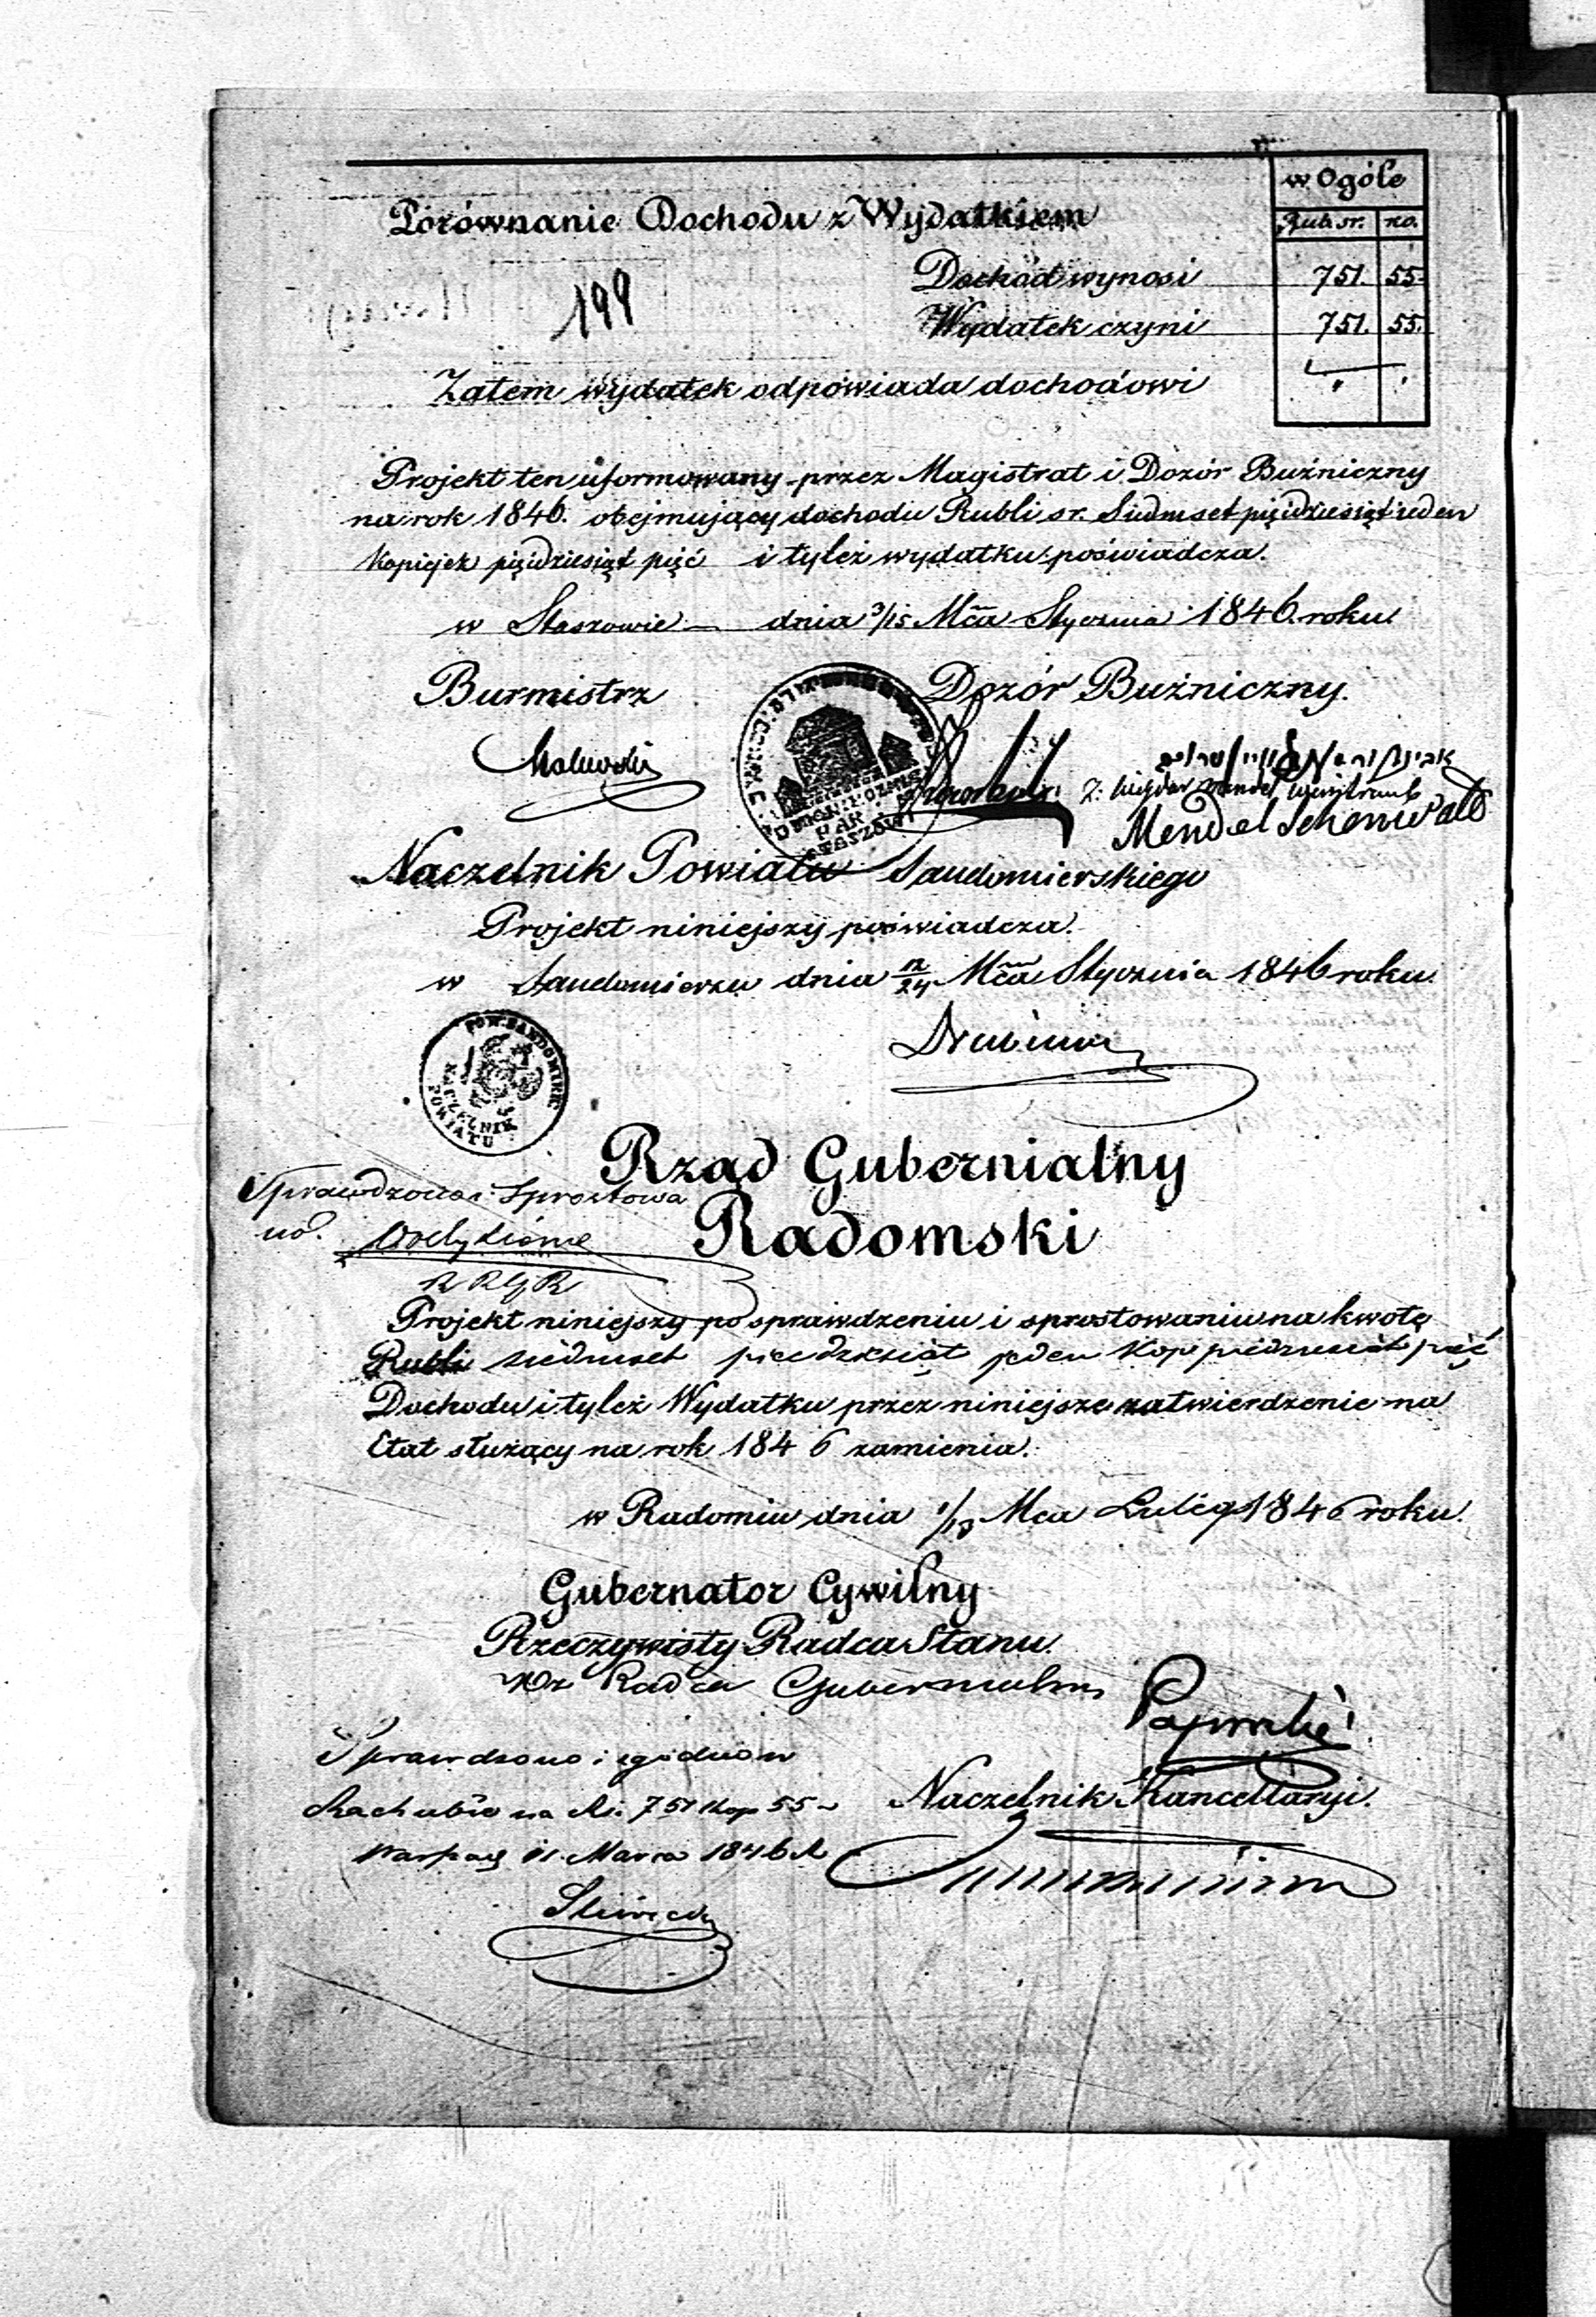 w Ogóle
Porównanie Dochodu z Wydatkiem
Rub. sr. ko.
Dochód wynosi 751. 55.
199
Wydatek czyni 751. 55.
Zatem wydatek odpowiada dochodowi
Projekt ten uformowany przez Magistrat i Dozór Buźniczny
na rok 1846. obejmujący dochodu Rubli sr. Siedmset pięćdziesiąt jeden
Kopiejek pięćdziesiąt pięć i tyleż wydatku poświadcza.
w Staszowie dnia 3/15 Mca Stycznia 1846. roku.
Burmistrz Dozór Buźniczny.
Mendel Schenwald
Naczelnik Powiatu Sandomierskiego
Projekt niniejszy poświadcza.
w Sandomierzu dnia 12/24 Mca Stycznia 1846 roku.
POW. SANDOMIRS.
NACZELNIK
POWIATU
Rząd Gubernialny
Sprawdzono i Sprostowa
no. Radomski
R R G R
Projekt niniejszy po sprawdzeniu i sprostowaniu na kwotę
Rubli siedmset piędziesiąt jeden Kop piędziesiąt pięć
Dochodu i tyleż Wydatku przez niniejsze zatwierdzenie na
Etat służący na rok 1846 zamienia.
w Radomiu dnia 1/13 Mca Lutego 1846 roku.
Gubernator Cywilny
Rzeczywisty Radca Stanu.
Wz Radca Gubernialny
Sprawdzono i zgodno w
Rachubie na Rs. 751 Kop 55
Naczelnik Kancellaryi.
Marca 1846 R